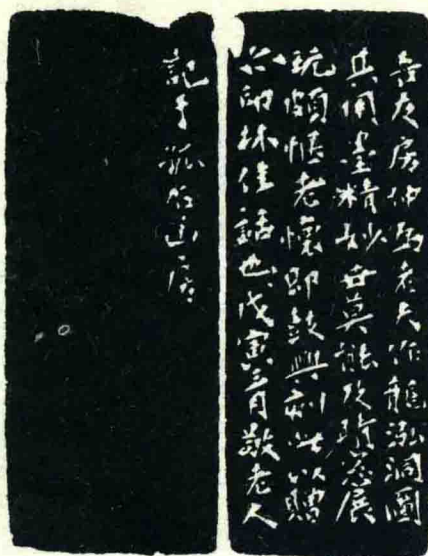 吾友房仲為老夫作龍泓洞圖
其用墨精妙世莫能展
玩頗愜老懷即鼓興刻此以贈
亦印林佳話也戊寅三月敬老人
記于孤石山房